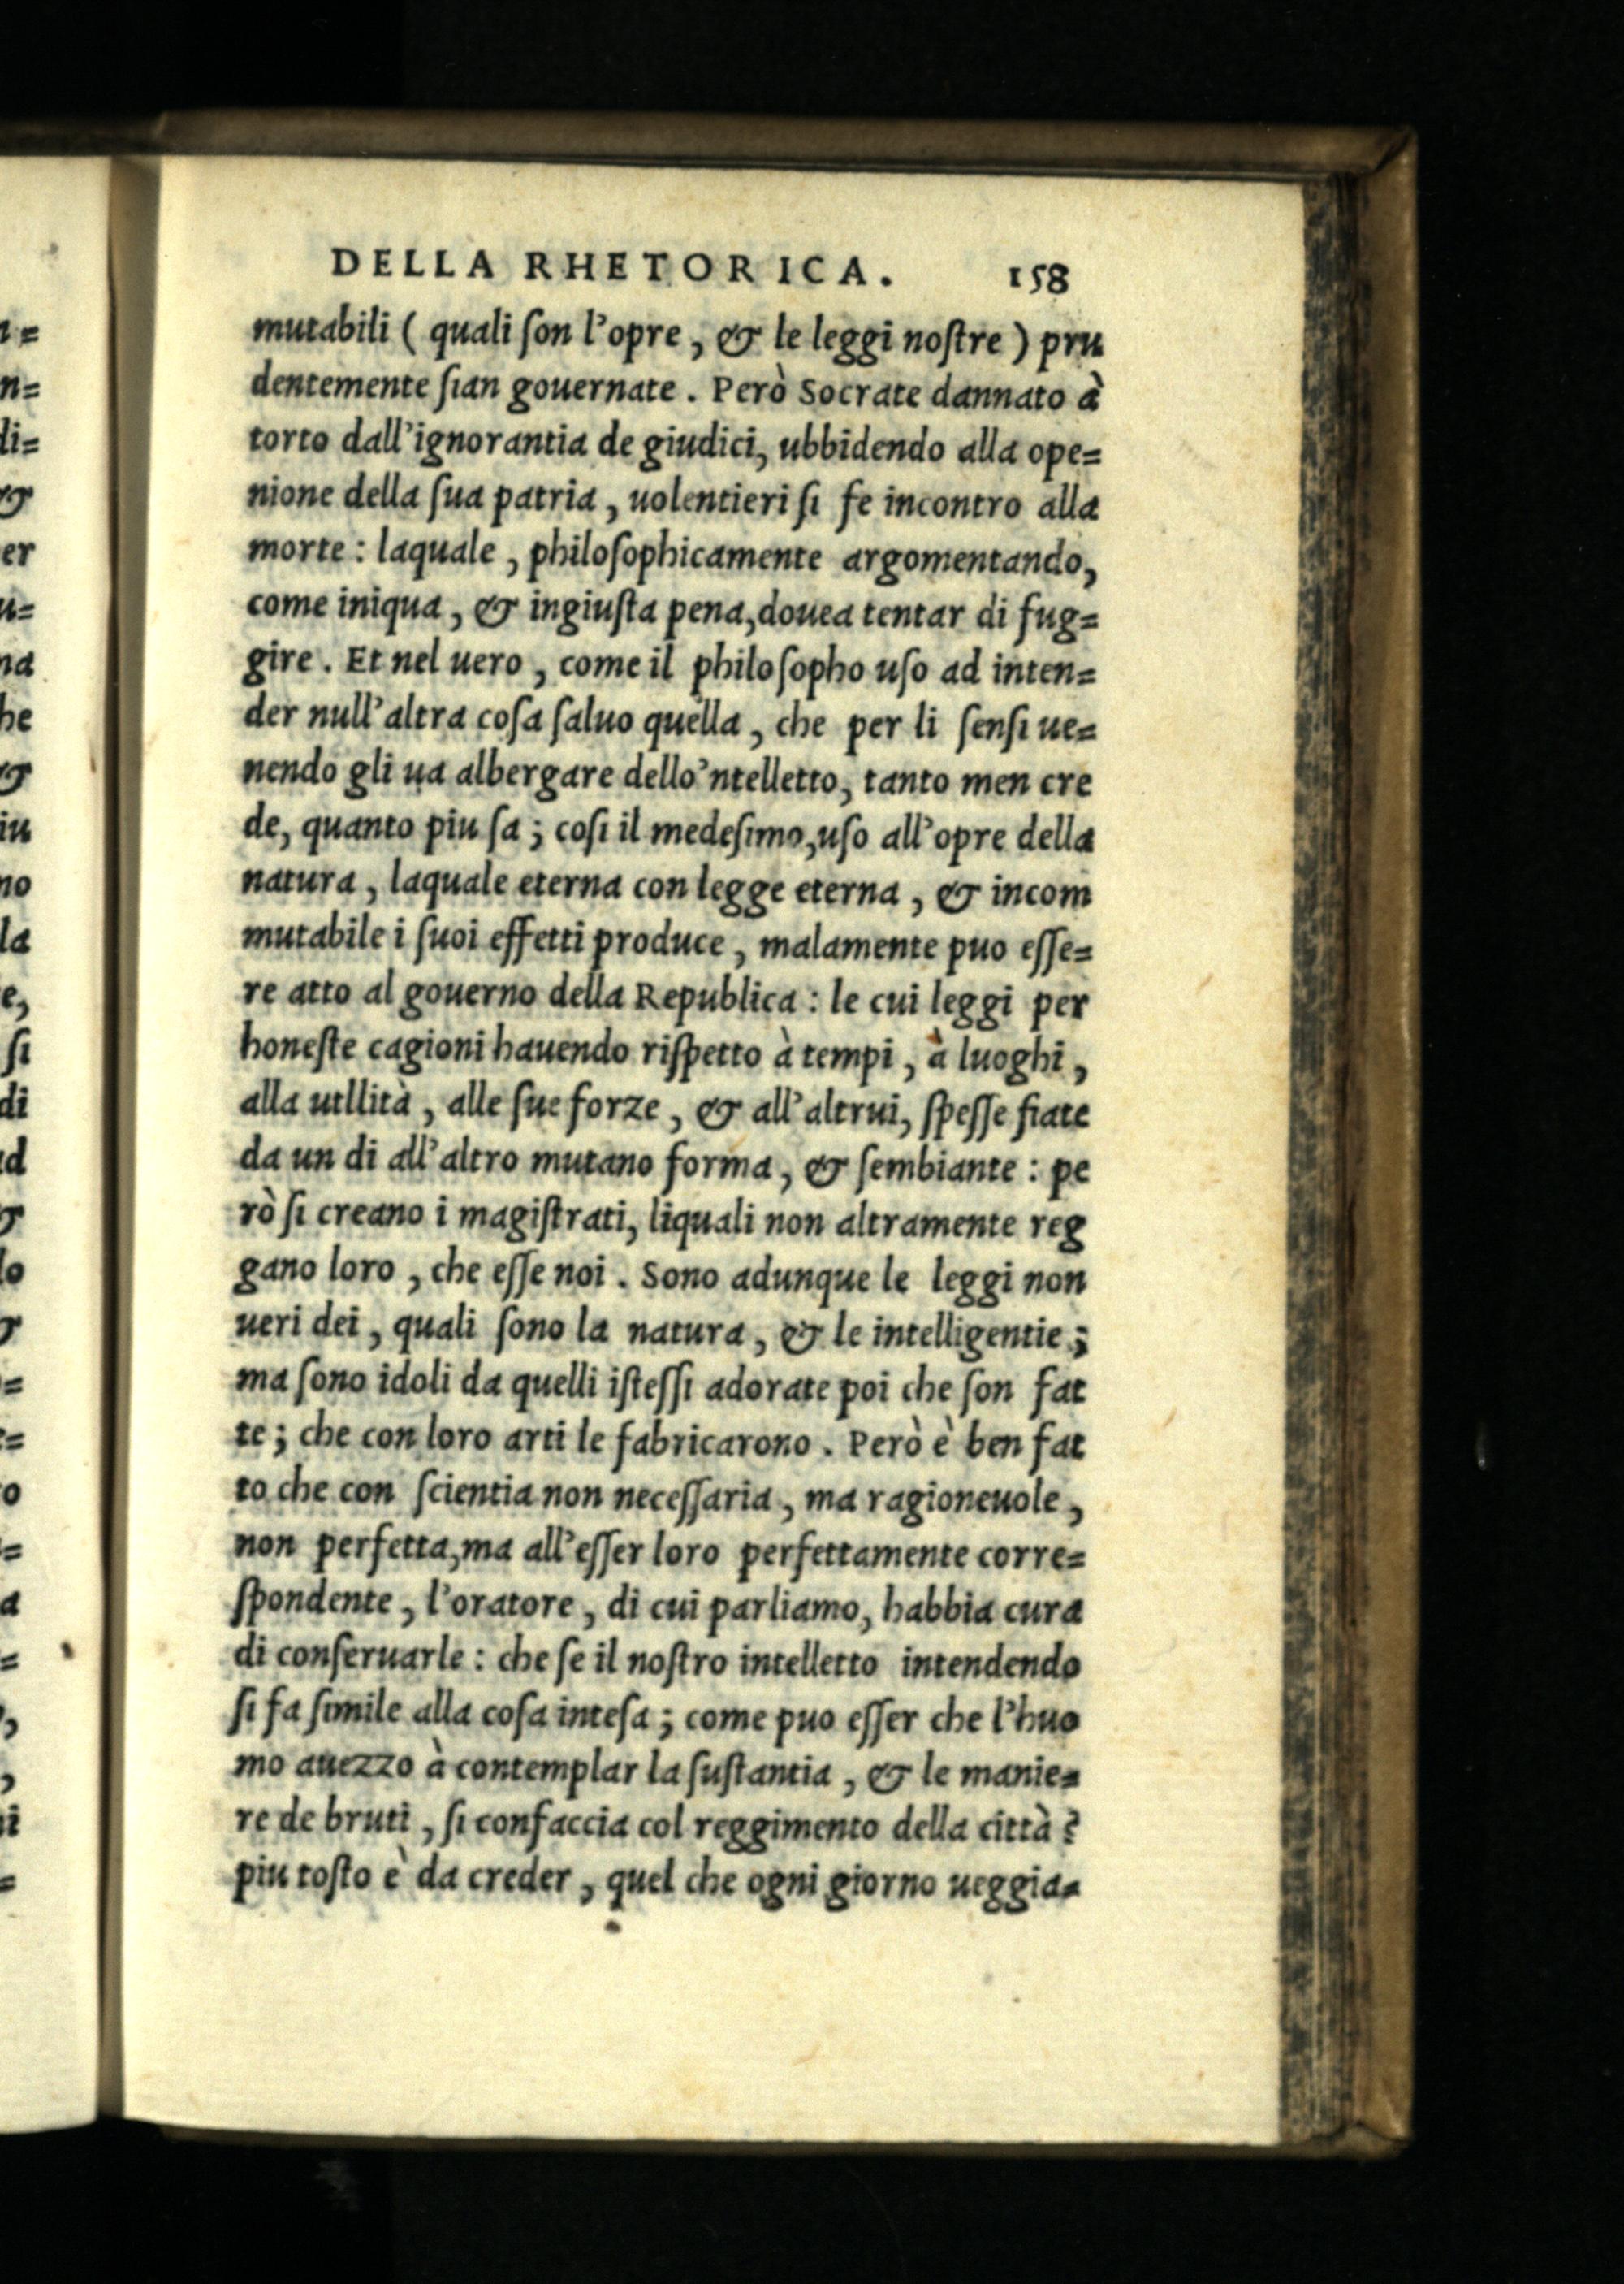 DELLA RHETORICA. 158
mutabili ( quali ſon l'opre, & le leggi noſtre ) pru
dentemente ſian gouernate. Però Socrate dannato à
torto dall'ignorantia de giudici, ubbidendo alla ope=
nione della ſua patria, uolentieri ſi fe incontro alla
morte: laquale, philoſophicamente argomentando,
come iniqua, & ingiuſta pena, douea tentar di fug=
gire. Et nel uero, come il philoſopho uſo ad inten=
der null'altra coſa ſaluo quella, che per li ſenſi ue=
nendo gli ua albergare dello'ntelletto, tanto men cre
de, quanto piu ſa; coſi il medeſimo, uſo all'opre della
natura, laquale eterna con legge eterna, & incom
mutabile i ſuoi effetti produce, malamente puo eſſe=
re atto al gouerno della Republica: le cui leggi per
honeſte cagioni hauendo riſpetto à tempi, à luoghi,
alla utllità, alle ſue forze, & all'altrui, ſpeſſe fiate
da un di all'altro mutano forma, & ſembiante: pe
rò ſi creano i magiſtrati, liquali non altramente reg
gano loro, che eſſe noi. Sono adunque le leggi non
ueri dei, quali ſono la natura, & le intelligentie;
ma ſono idoli da quelli iſteſſi adorate poi che ſon fat
te; che con loro arti le fabricarono. Però è ben fat
to che con ſcientia non neceſſaria, ma ragioneuole,
non perfetta, ma all'eſſer loro perfettamente corre=
ſpondente, l'oratore, di cui parliamo, habbia cura
di conſeruarle: che ſe il noſtro intelletto intendendo
ſi fa ſimile alla coſa inteſa; come puo eſſer che l'huo
mo auezzo à contemplar la ſuſtantia, & le manie=
re de bruti, ſi confaccia col reggimento della città?
piu toſto è da creder, quel che ogni giorno ueggia=